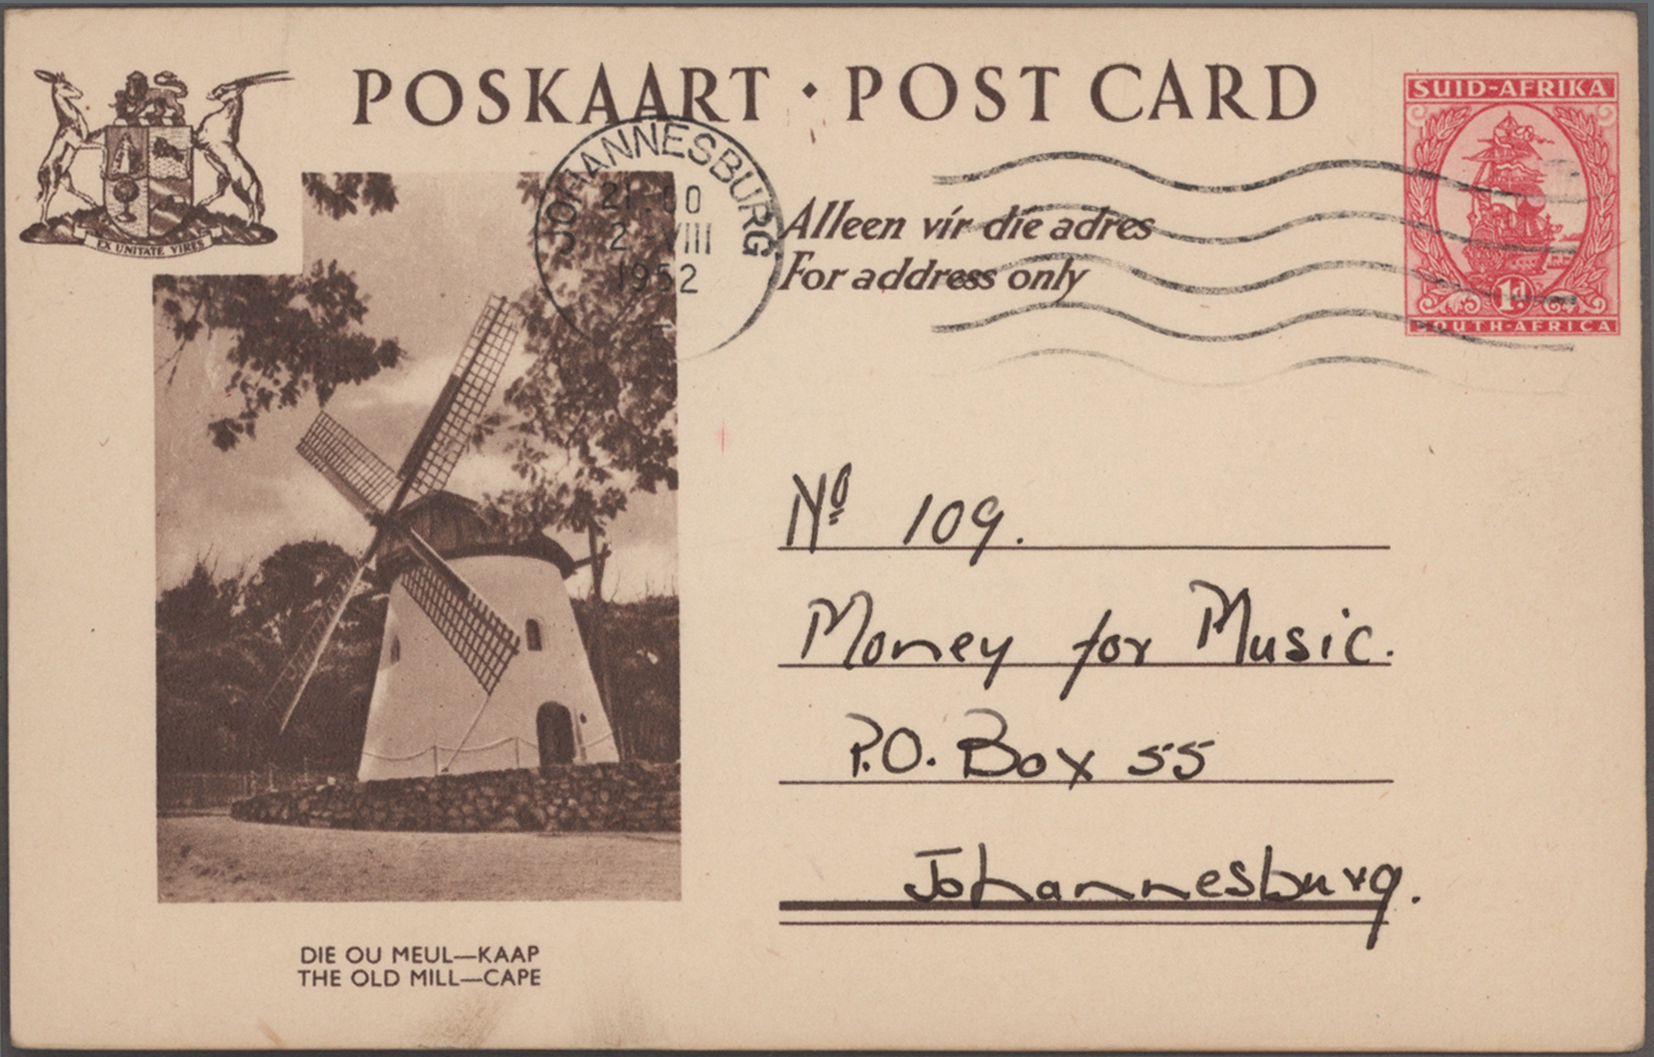 POSKAART · POST CARD
SUID-AFRIKA
1d
SOUTH-AFRICA
EX UNITATE VIRES
JOHANNESBURG
21·00
2 VIII
1952
Alleen vir die adres
For address only
Nº 109.
Money for Music.
P.O. Box 55
Johannesburg.
DIE OU MEUL—KAAP
THE OLD MILL—CAPE